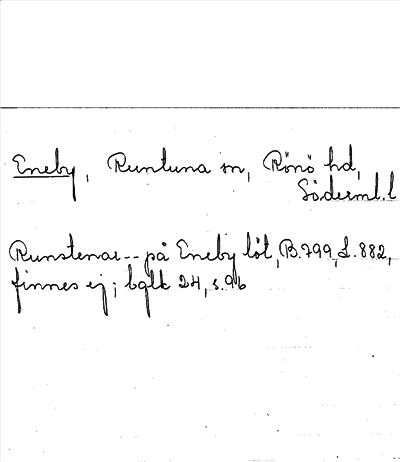 Eneby, Runtuna sn, Rönö hd,
Söderml. l
Runstenar -- på Eneby löt, B. 799, L. 882,
finnes ej; bglk 24, s. 96